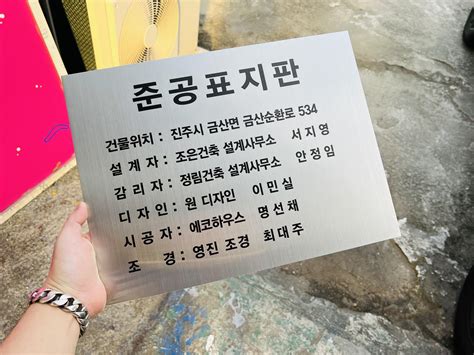 준공표지판
건물위치 : 진주시 금산면 금산순환로 534
설 계 자 : 조은건축 설계사무소 서지영
감 리 자 : 정림건축 설계사무소 안정임
디 자 인 : 원 디자인 이민실
시 공 자 : 에코하우스 명선채
조 경 : 영진 조경 최대주